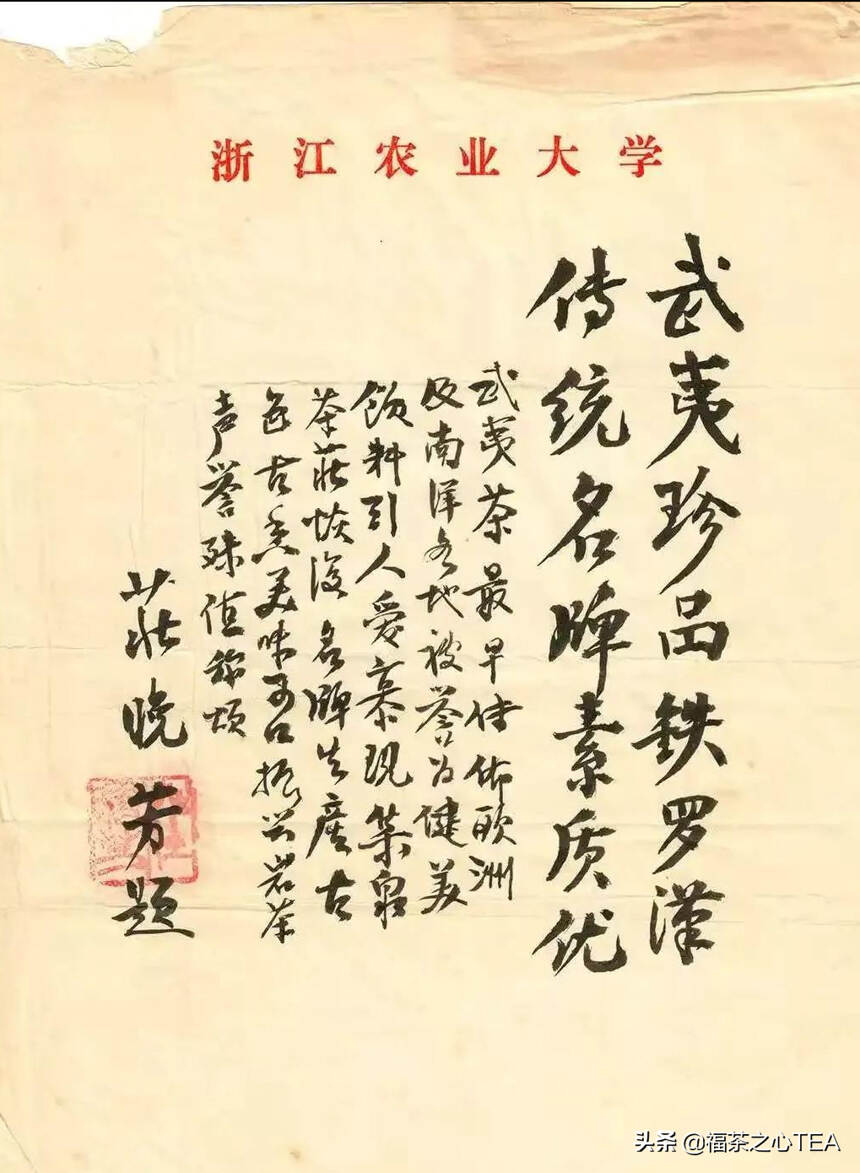 浙江农业大学
武夷珍品鉄罗漢
传统名牌素质优
武夷茶最早传佈欧洲
及南洋各地被誉为健美
飲料引人爱慕现集泉
茶莊恢復名牌生産古
色古香美味可口振兴岩茶
声誉殊值称颂
莊晚芳题
头条 @福茶之心TEA